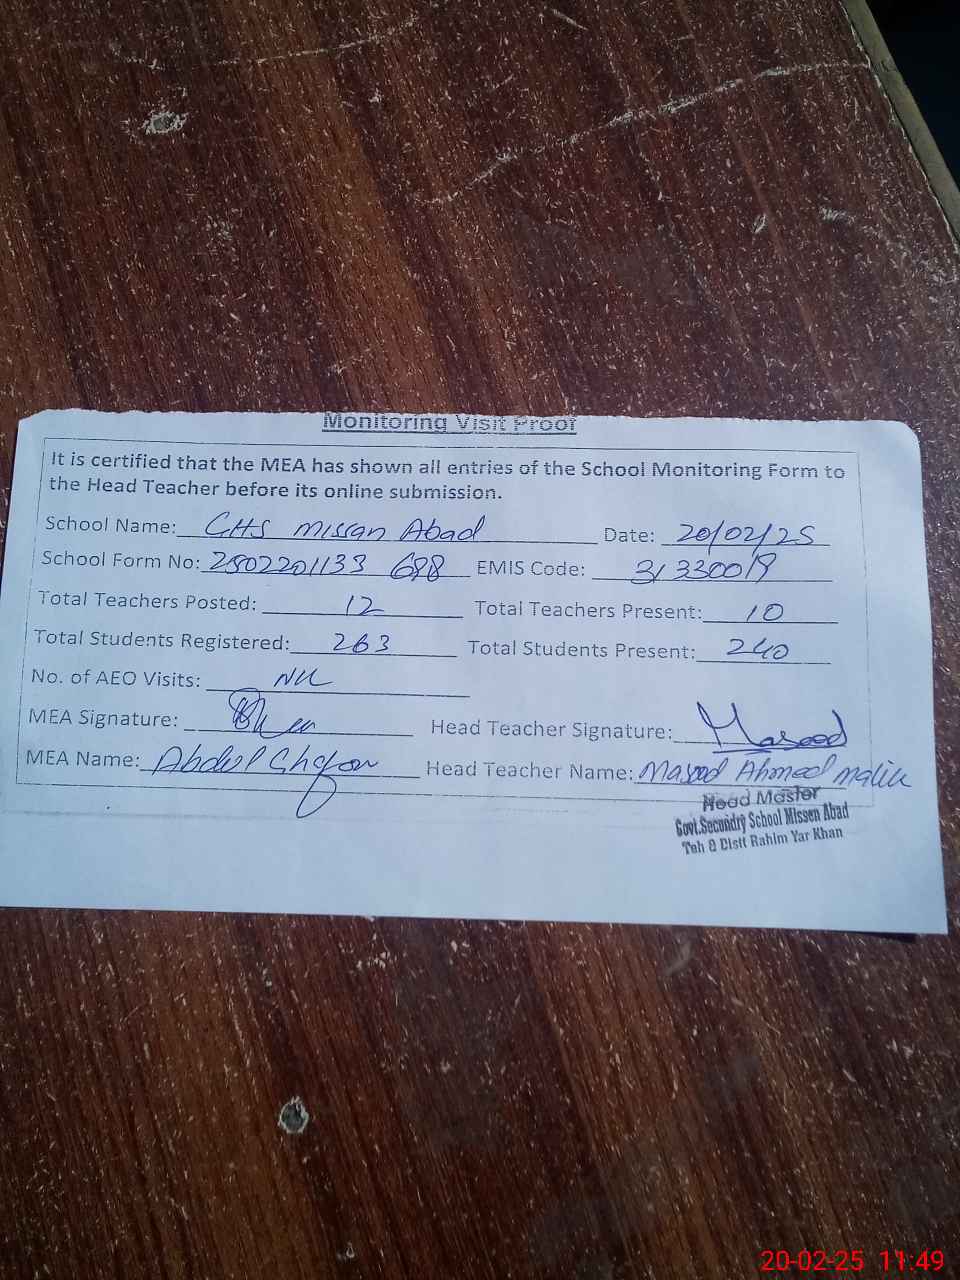 Monitoring Visit Proof
It is certified that the MEA has shown all entries of the School Monitoring Form to
the Head Teacher before its online submission.
School Name: GHS missan Abad Date: 20/02/25
School Form No: 2502201133 698 EMIS Code: 31330019
Total Teachers Posted: 12 Total Teachers Present: 10
Total Students Registered: 263 Total Students Present: 240
No. of AEO Visits: Nil
MEA Signature: Head Teacher Signature: Masood
MEA Name: Abdul Ghafoor Head Teacher Name: Masood Ahmed malik
Head Master
Govt.Secundry School Missen Abad
Teh & Distt Rahim Yar Khan
20-02-25 11:49